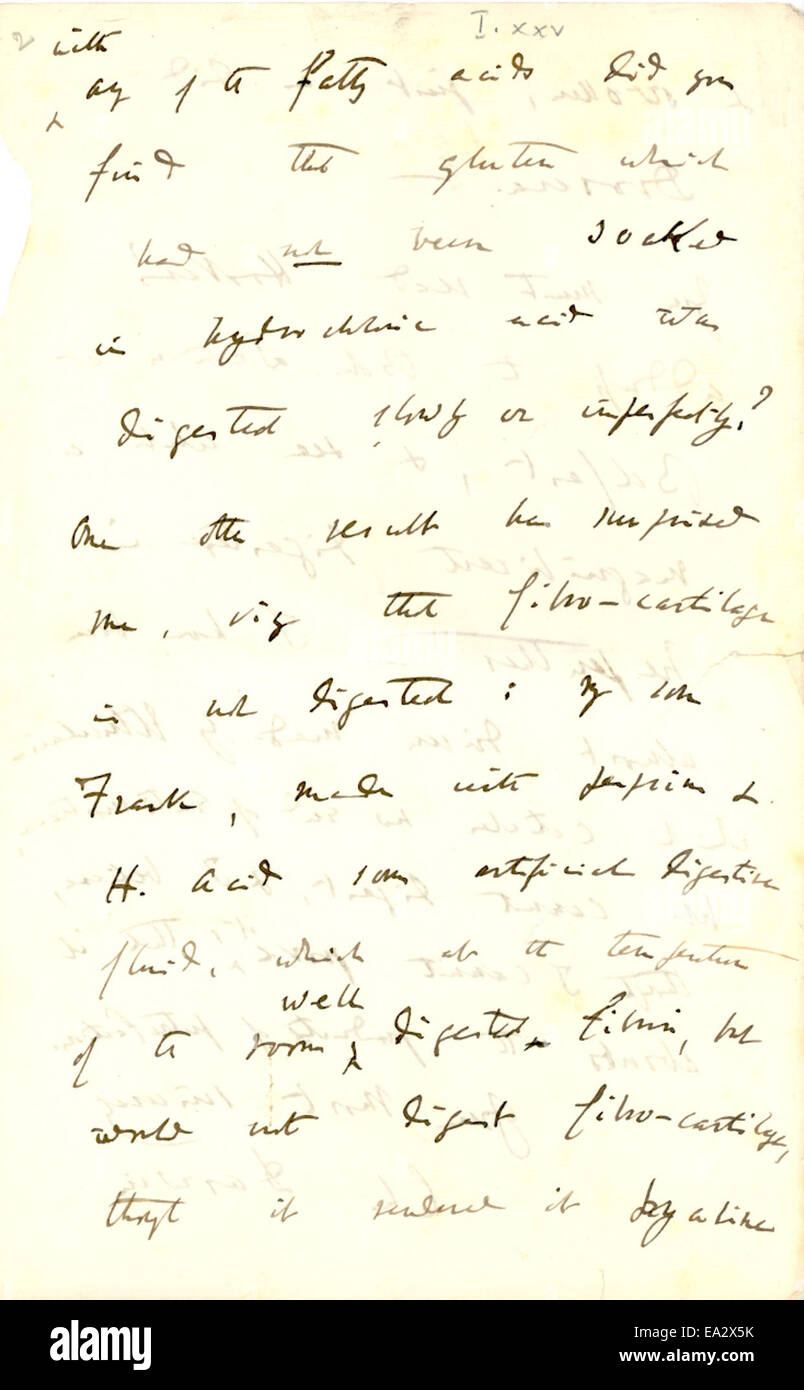 I. xxv
with
any of the fatty acids did you
find that gluten which
had not been soaked
in hydrochloric acid was
digested slowly or imperfectly?
One other result has surprised
me, viz that fibro-cartilage
is not digested: my son
Frank, made with pepsine &
H. Acid some artificial digestive
fluid, which at the temperature
well
of the room digested fibrin, but
would not digest fibro-cartilage,
though it rendered it hyaline
alamy
Image ID: EA2X5K
www.alamy.com